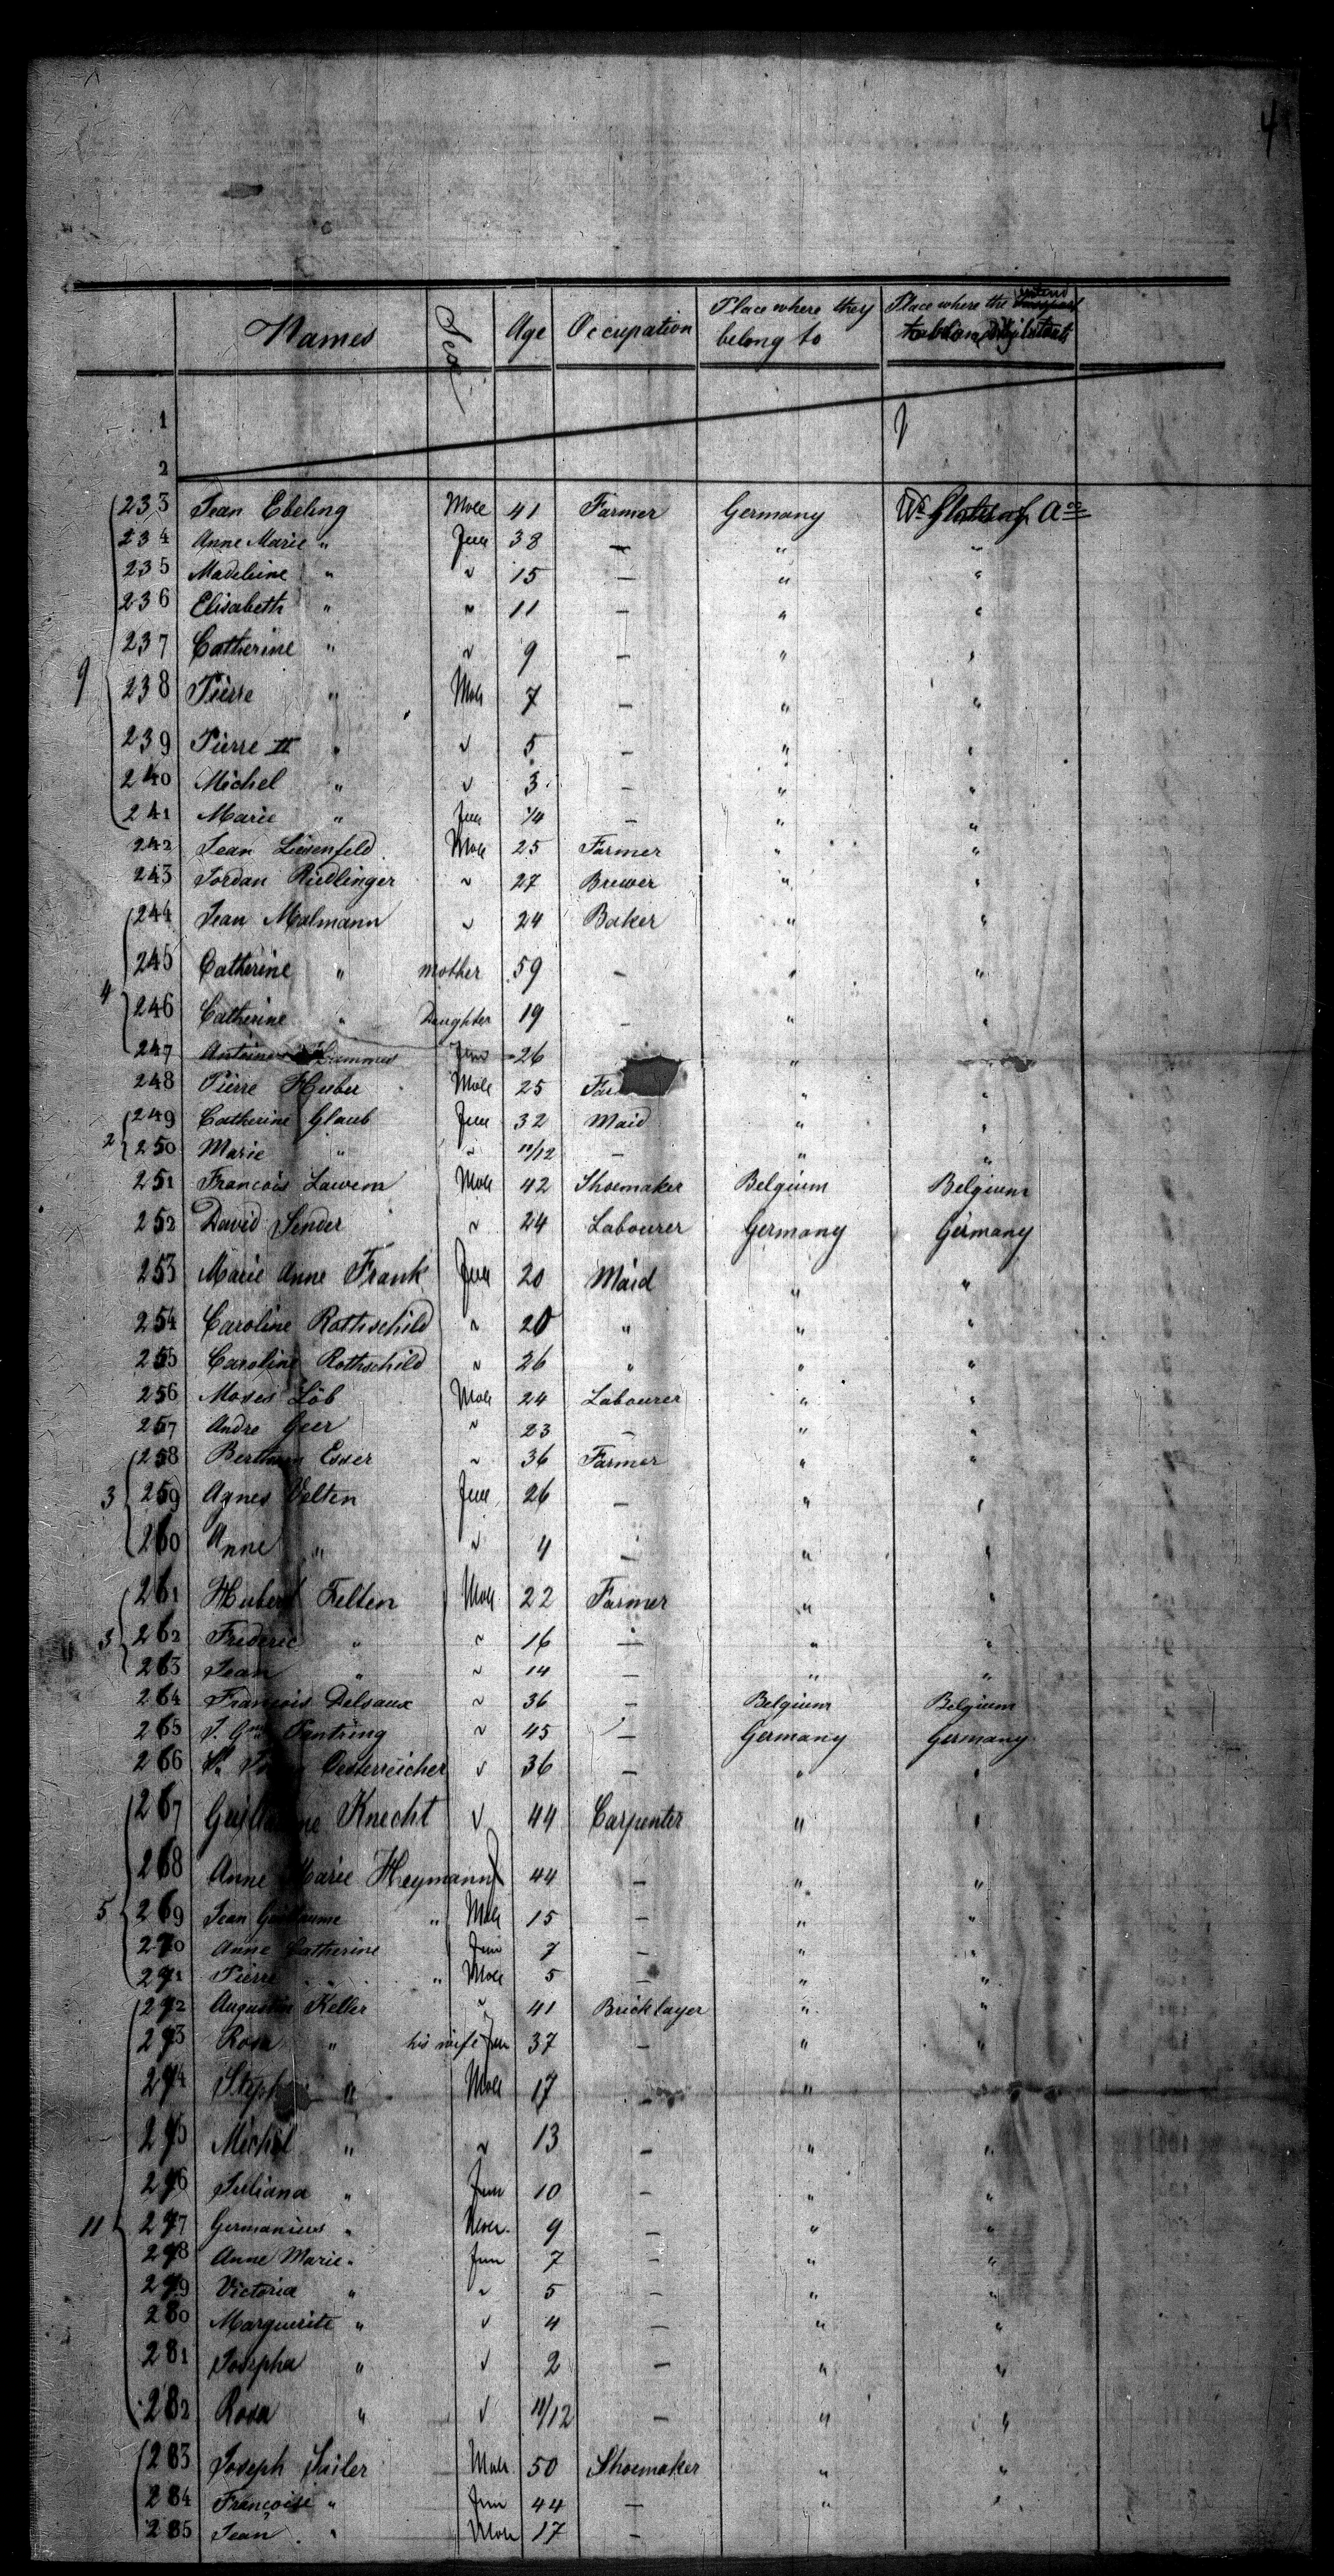 4
Names Sex Age Occupation Place where they belong to Place where the intend
1
2
233 Jean Ebeling Male 41 Farmer Germany
234 Anne Marie " Fem 38 — " "
235 Madeleine " " 15 — " "
236 Elisabeth " " 11 — " "
237 Catherine " " 9 — " "
9 238 Pierre " Male 7 — " "
239 Pierre II " " 5 — " "
240 Michel " " 3 — " "
241 Marie " Fem 1/4 — " "
242 Jean Liesenfeld Male 25 Farmer " "
243 Jordan Riedlinger " 27 Brewer " "
244 Jean Malmann " 24 Baker " "
245 Catherine " mother 59 — " "
4 246 Catherine " Daughter 19 — " "
247 Hammes Fem 26 " "
248 Pierre Huber Male 25 Fa " "
249 Catherine Glaub Fem 32 Maid " "
2 250 Marie " " 11/12 — " "
251 Francois Lawem Male 42 Shoemaker Belgium Belgium
252 David Sender " 24 Labourer Germany Germany
253 Marie Anne Frank Fem 20 Maid " "
254 Caroline Rothschild " 20 " " "
255 Caroline Rothschild " 26 " " "
256 Moses Löb Male 24 Labourer " "
257 Andre Geer " 23 — " "
258 Esser " 36 Farmer " "
3 259 Agnes Velten Fem 26 — " "
260 Anne " " 4 — " "
261 Hubert Felten Male 22 Farmer " "
3 262 Frederic " " 16 — " "
263 Jean " " 14 — " "
264 Francois Delsaux " 36 — Belgium Belgium
265 J. Pantring " 45 — Germany Germany
266 Oesterreicher " 36 — " "
267 Guillaume Knecht " 44 Carpenter " "
268 Anne Marie Heymann 44 — " "
5 269 Jean Guillaume " Male 15 — " "
270 Anne Catherine Fem 7 — " "
271 Pierre " Male 5 — " "
272 Augustin Keller " 41 Bricklayer " "
273 Rosa " his wife Fem 37 — " "
274 Steph " Male 17 — " "
275 Michel " " 13 — " "
276 Juliana " Fem 10 — " "
11 277 Germanicus " Male 9 — " "
278 Anne Marie " Fem 7 — " "
279 Victoria " " 5 — " "
280 Marguerite " " 4 — " "
281 Josepha " " 2 — " "
282 Rosa " " 11/12 — " "
283 Joseph Sailer Male 50 Shoemaker " "
284 Françoise " Fem 44 — " "
285 Jean " Male 17 —